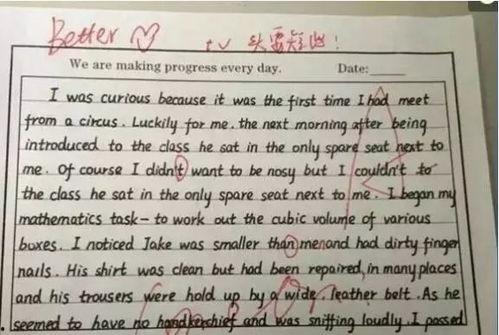 Better
tv 头要短出!
We are making progress every day. Date:
I was curious because it was the first time I had meet
from a circus. Luckily for me. the next morning after being
introduced to the class he sat in the only spare seat next to
me. Of course I didn't want to be nosy but I couldn't to
the class he sat in the only spare seat next to me. I began my
mathematics task- to work out the cubic volume of various
boxes. I noticed Jake was smaller than menand had dirty finger
nails. His shirt was clean but had been repaired, in many places
and his trousers were hold up by a wide, leather belt. As he
seemed to have no handkerchief and was sniffing loudly. I passed